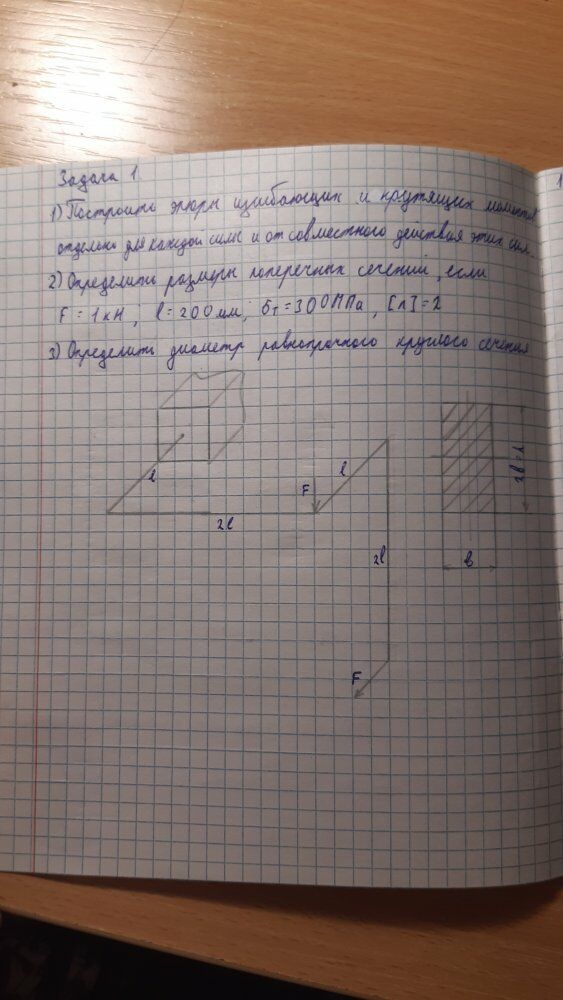 Задача 1.
1) Построить эпюры изгибающих и крутящих моментов
отдельно для каждой силы и от совместного действия этих сил.
2) Определить размеры поперечных сечений, если
F = 1 кН; l = 200 мм; бт = 300 МПа, [n] = 2
3) Определить диаметр равнопрочного круглого сечения
l
2l
F
l
2l
F
2в = h
в
1